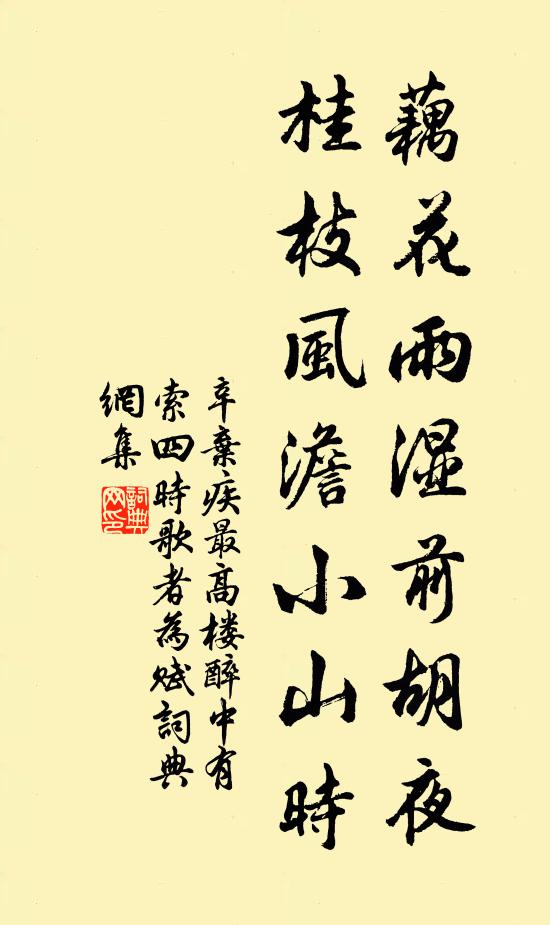 藕花雨湿前胡夜
桂枝風澹小山時
辛棄疾最高楼醉中有
索四時歌者為赋詞典
網集
詞典
网印